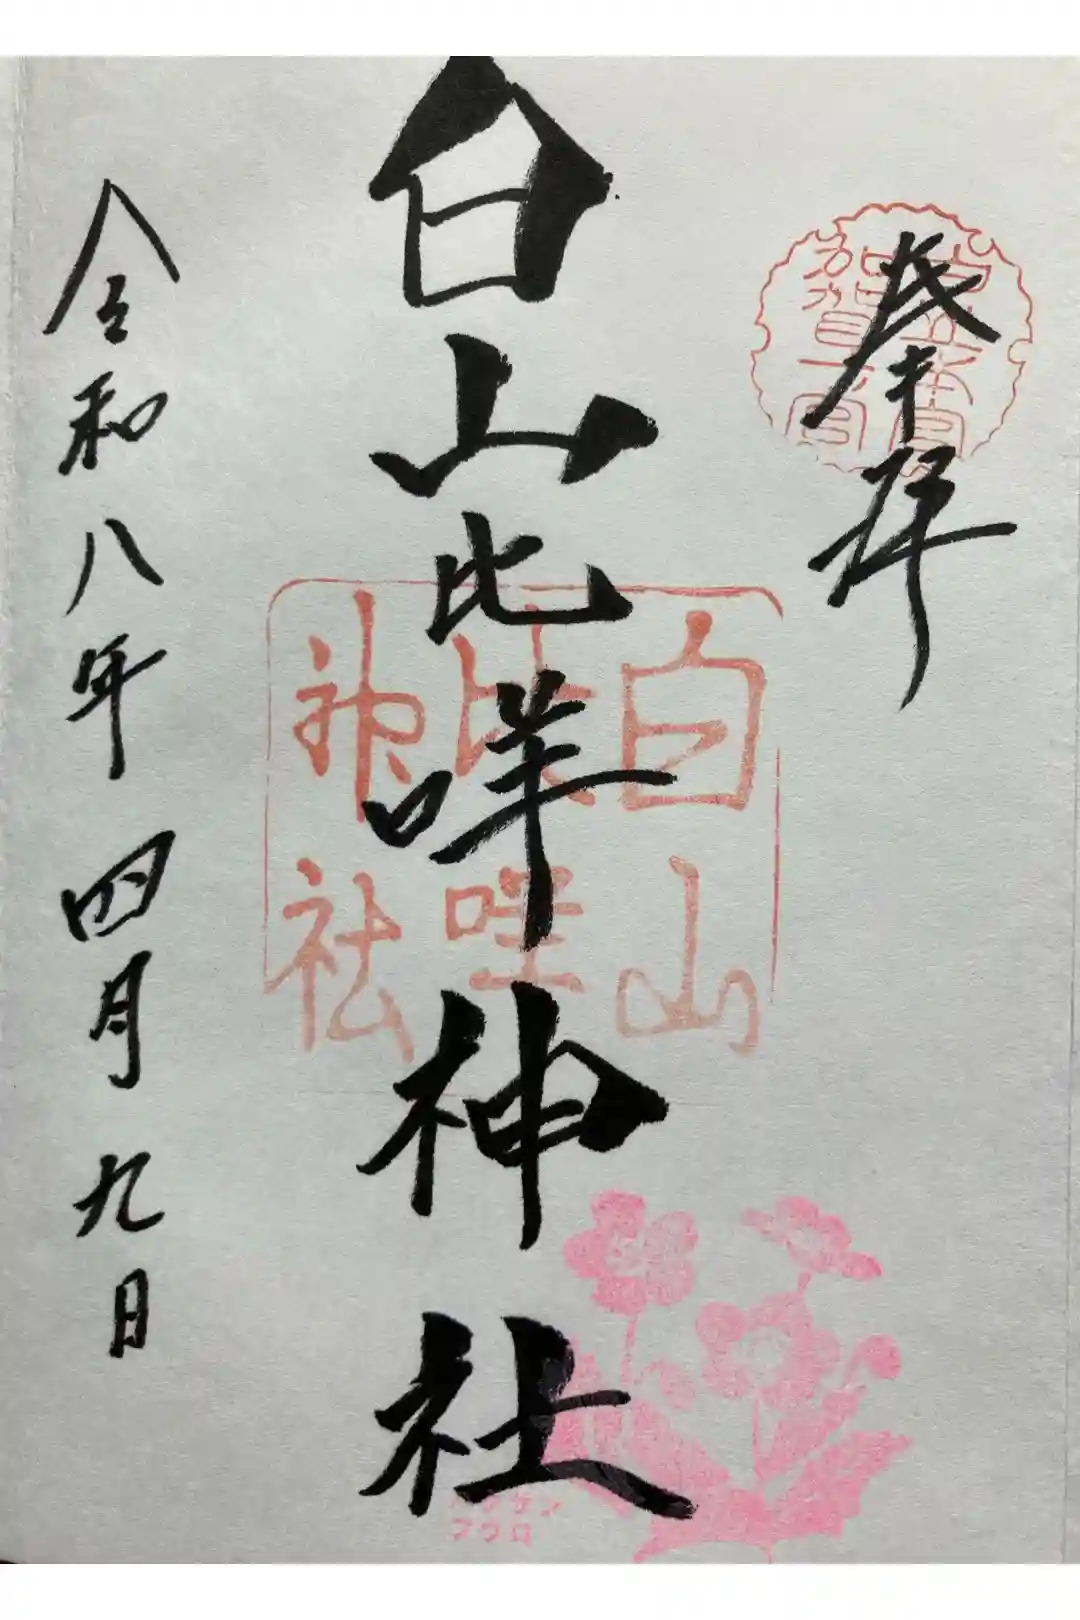 奉拝
加賀一宮
白山比咩神社
白山
比咩
神社
ハクサン
フウロ
令和八年四月九日